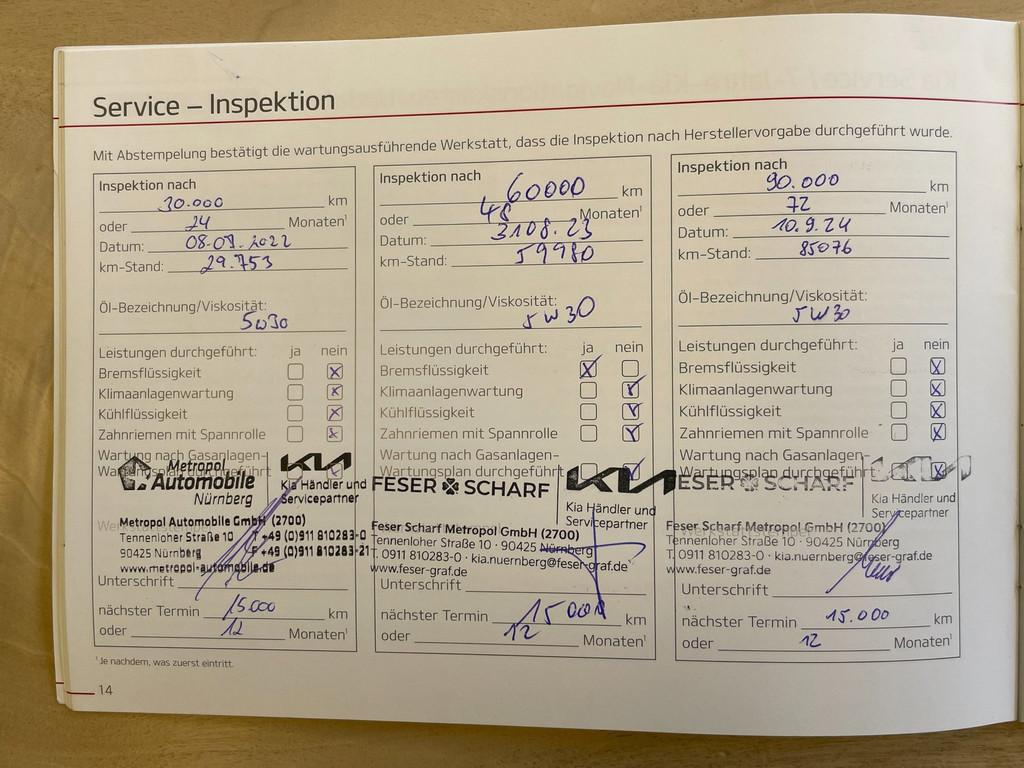 Service – Inspektion
Mit Abstempelung bestätigt die wartungsausführende Werkstatt, dass die Inspektion nach Herstellervorgabe durchgeführt wurde.
Inspektion nach
30.000 km
oder 24 Monaten¹
Datum: 08.09.2022
km-Stand: 29.753
Öl-Bezeichnung/Viskosität:
5W30
Leistungen durchgeführt: ja nein
Bremsflüssigkeit
Klimaanlagenwartung
Kühlflüssigkeit
Zahnriemen mit Spannrolle
Wartung nach Gasanlagen-
Wartungsplan durchgeführt
Metropol
Automobile
Nürnberg
KIA
Kia Händler und
Servicepartner
Metropol Automobile GmbH (2700)
Tennenloher Straße 10 T +49 (0)911 810283-0
90425 Nürnberg F +49 (0)911 810283-21
www.metropol-automobile.de
Unterschrift
nächster Termin 15000 km
oder 12 Monaten¹
Inspektion nach
60000 km
oder 48 Monaten¹
Datum: 3108.23
km-Stand: 59980
Öl-Bezeichnung/Viskosität:
5W30
Leistungen durchgeführt: ja nein
Bremsflüssigkeit
Klimaanlagenwartung
Kühlflüssigkeit
Zahnriemen mit Spannrolle
Wartung nach Gasanlagen-
Wartungsplan durchgeführt
FESER SCHARF
KIA
Kia Händler und
Servicepartner
Feser Scharf Metropol GmbH (2700)
Tennenloher Straße 10 · 90425 Nürnberg
T. 0911 810283-0 · kia.nuernberg@feser-graf.de
www.feser-graf.de
Unterschrift
nächster Termin 15000 km
oder 12 Monaten¹
Inspektion nach
90.000 km
oder 72 Monaten¹
Datum: 10.9.24
km-Stand: 85076
Öl-Bezeichnung/Viskosität:
5W30
Leistungen durchgeführt: ja nein
Bremsflüssigkeit
Klimaanlagenwartung
Kühlflüssigkeit
Zahnriemen mit Spannrolle
Wartung nach Gasanlagen-
Wartungsplan durchgeführt
FESER SCHARF
KIA
Kia Händler und
Servicepartner
Feser Scharf Metropol GmbH (2700)
Tennenloher Straße 10 · 90425 Nürnberg
T. 0911 810283-0 · kia.nuernberg@feser-graf.de
www.feser-graf.de
Unterschrift
nächster Termin 15.000 km
oder 12 Monaten¹
¹ Je nachdem, was zuerst eintritt.
14